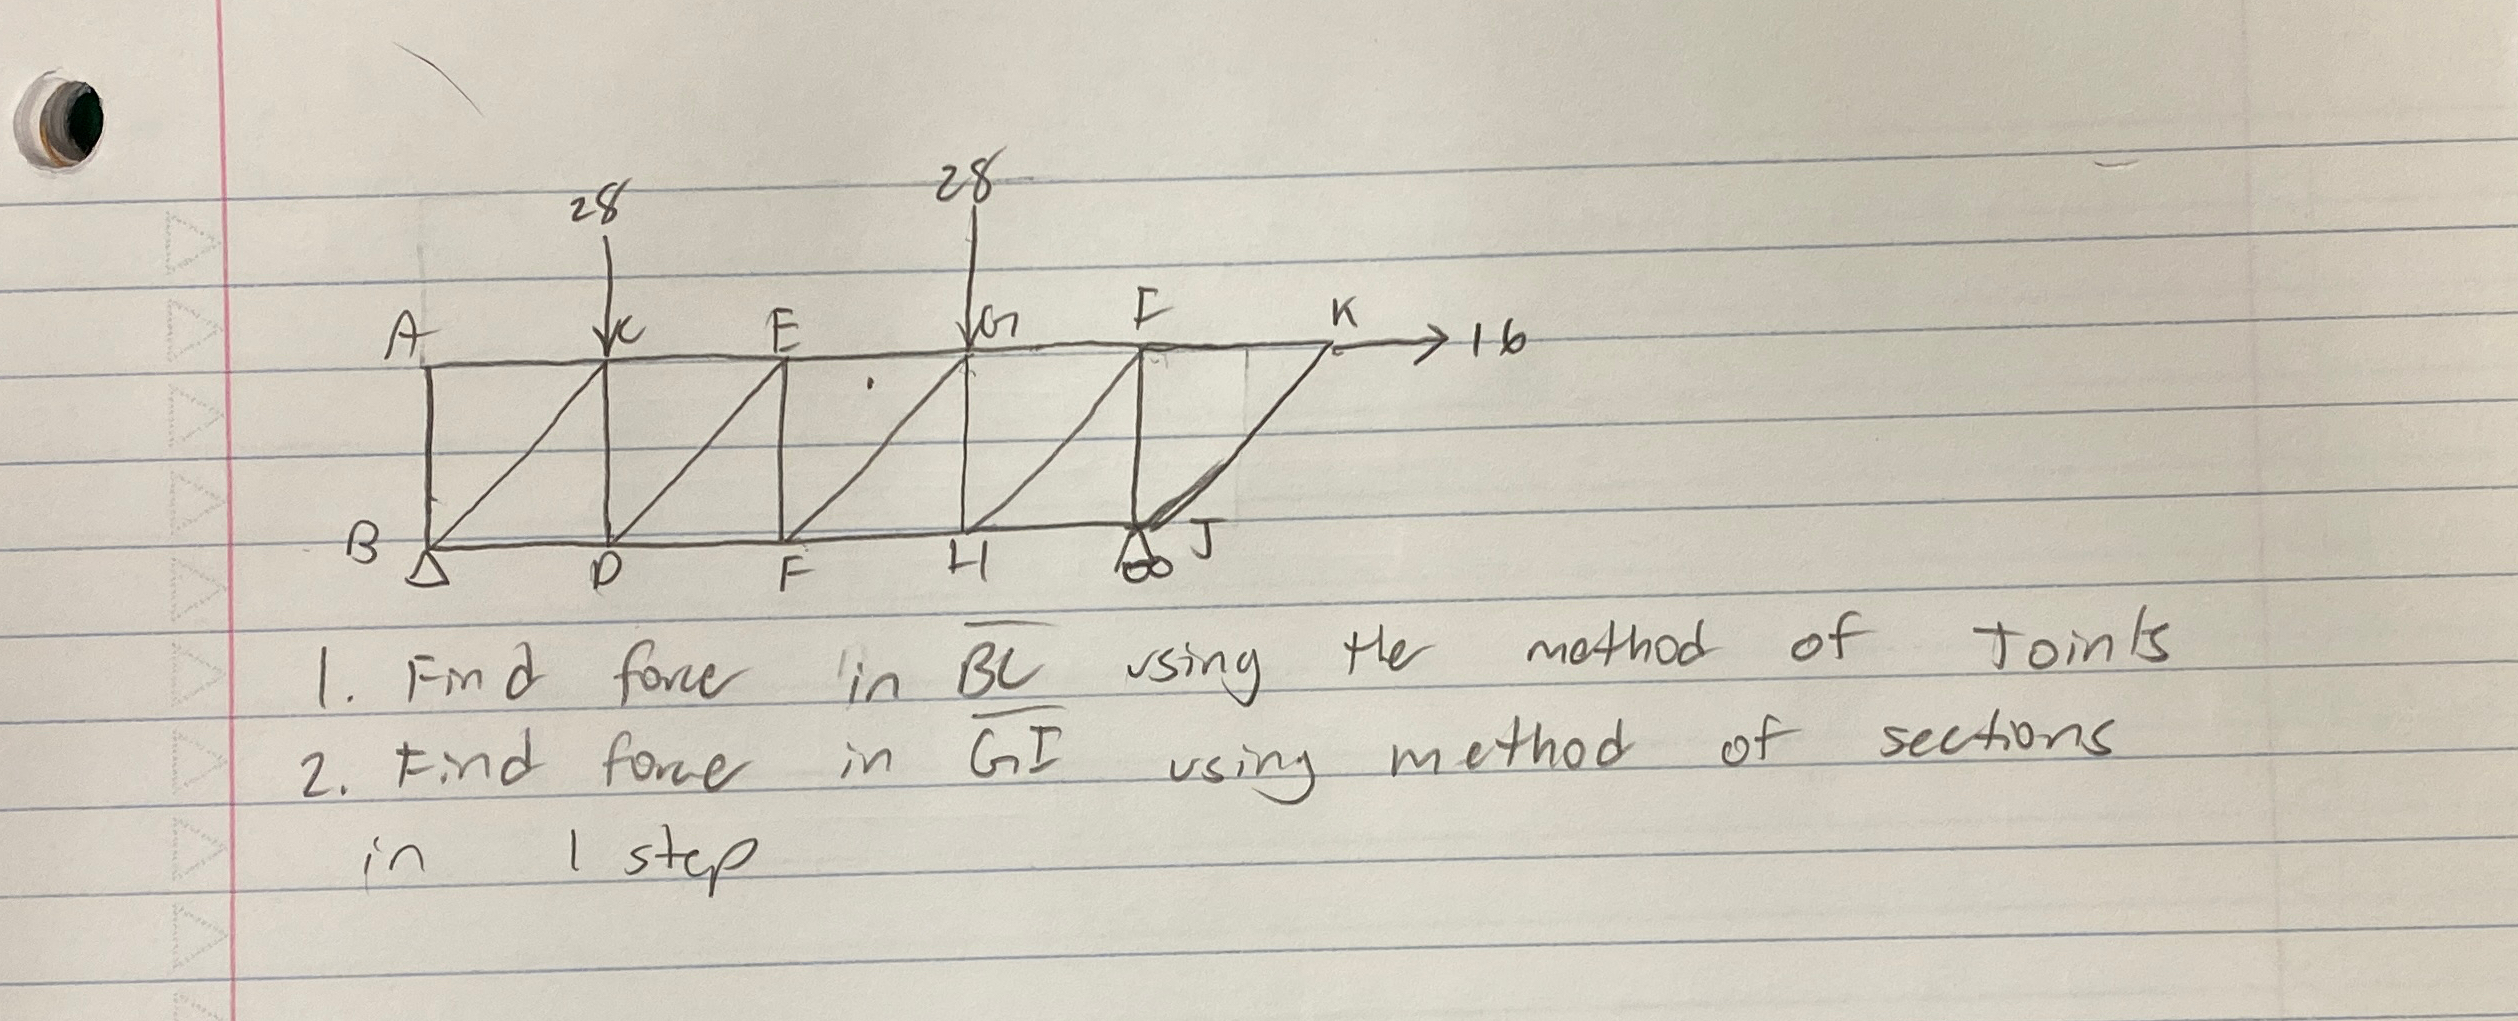 28 28
A C E G I K 16
B D F H J
1. Find force in BC using the method of Joints
2. Find force in GI using method of sections
in 1 step